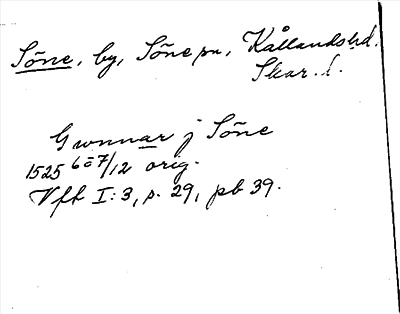 Söne, by, Söne sn, Kållandshd.
Skar. l.
Gwnnar j Söne
1525 6–7/12 orig.
Vfb I:3, s. 29, pb 39.